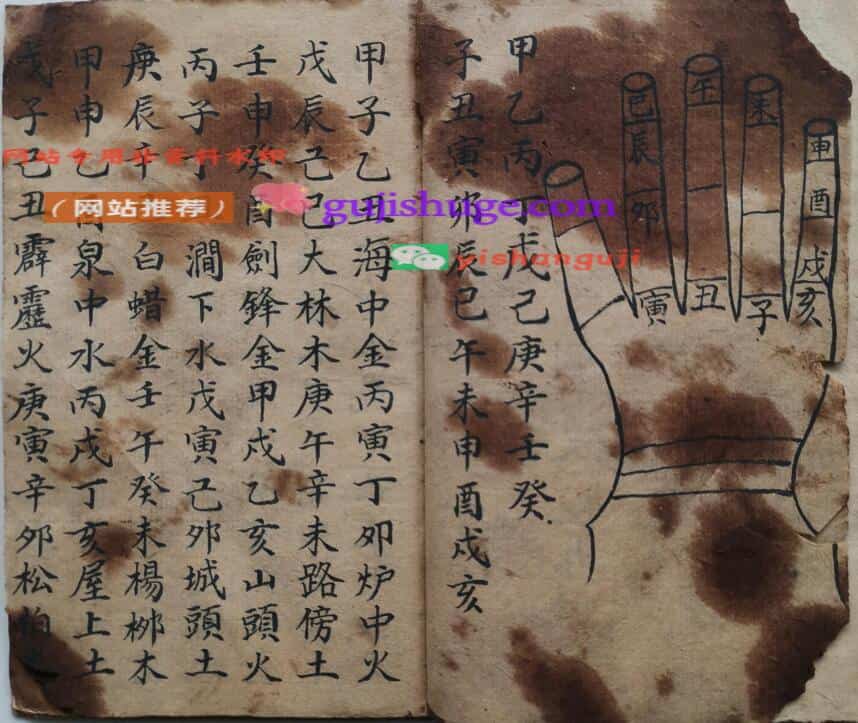 申酉戌亥
未子
午丑
巳辰卯寅
甲乙丙丁戊己庚辛壬癸
子丑寅卯辰巳午未申酉戌亥
甲子乙丑海中金丙寅丁卯炉中火
戊辰己巳大林木庚午辛未路傍土
壬申癸酉劍鋒金甲戌乙亥山頭火
丙子丁澗下水戊寅己卯城頭土
庚辰辛白蜡金壬午癸未楊柳木
甲申乙泉中水丙戌丁亥屋上土
戊子己丑霹靂火庚寅辛卯松柏
（网站推荐）
gujishuge.com
yishanguji